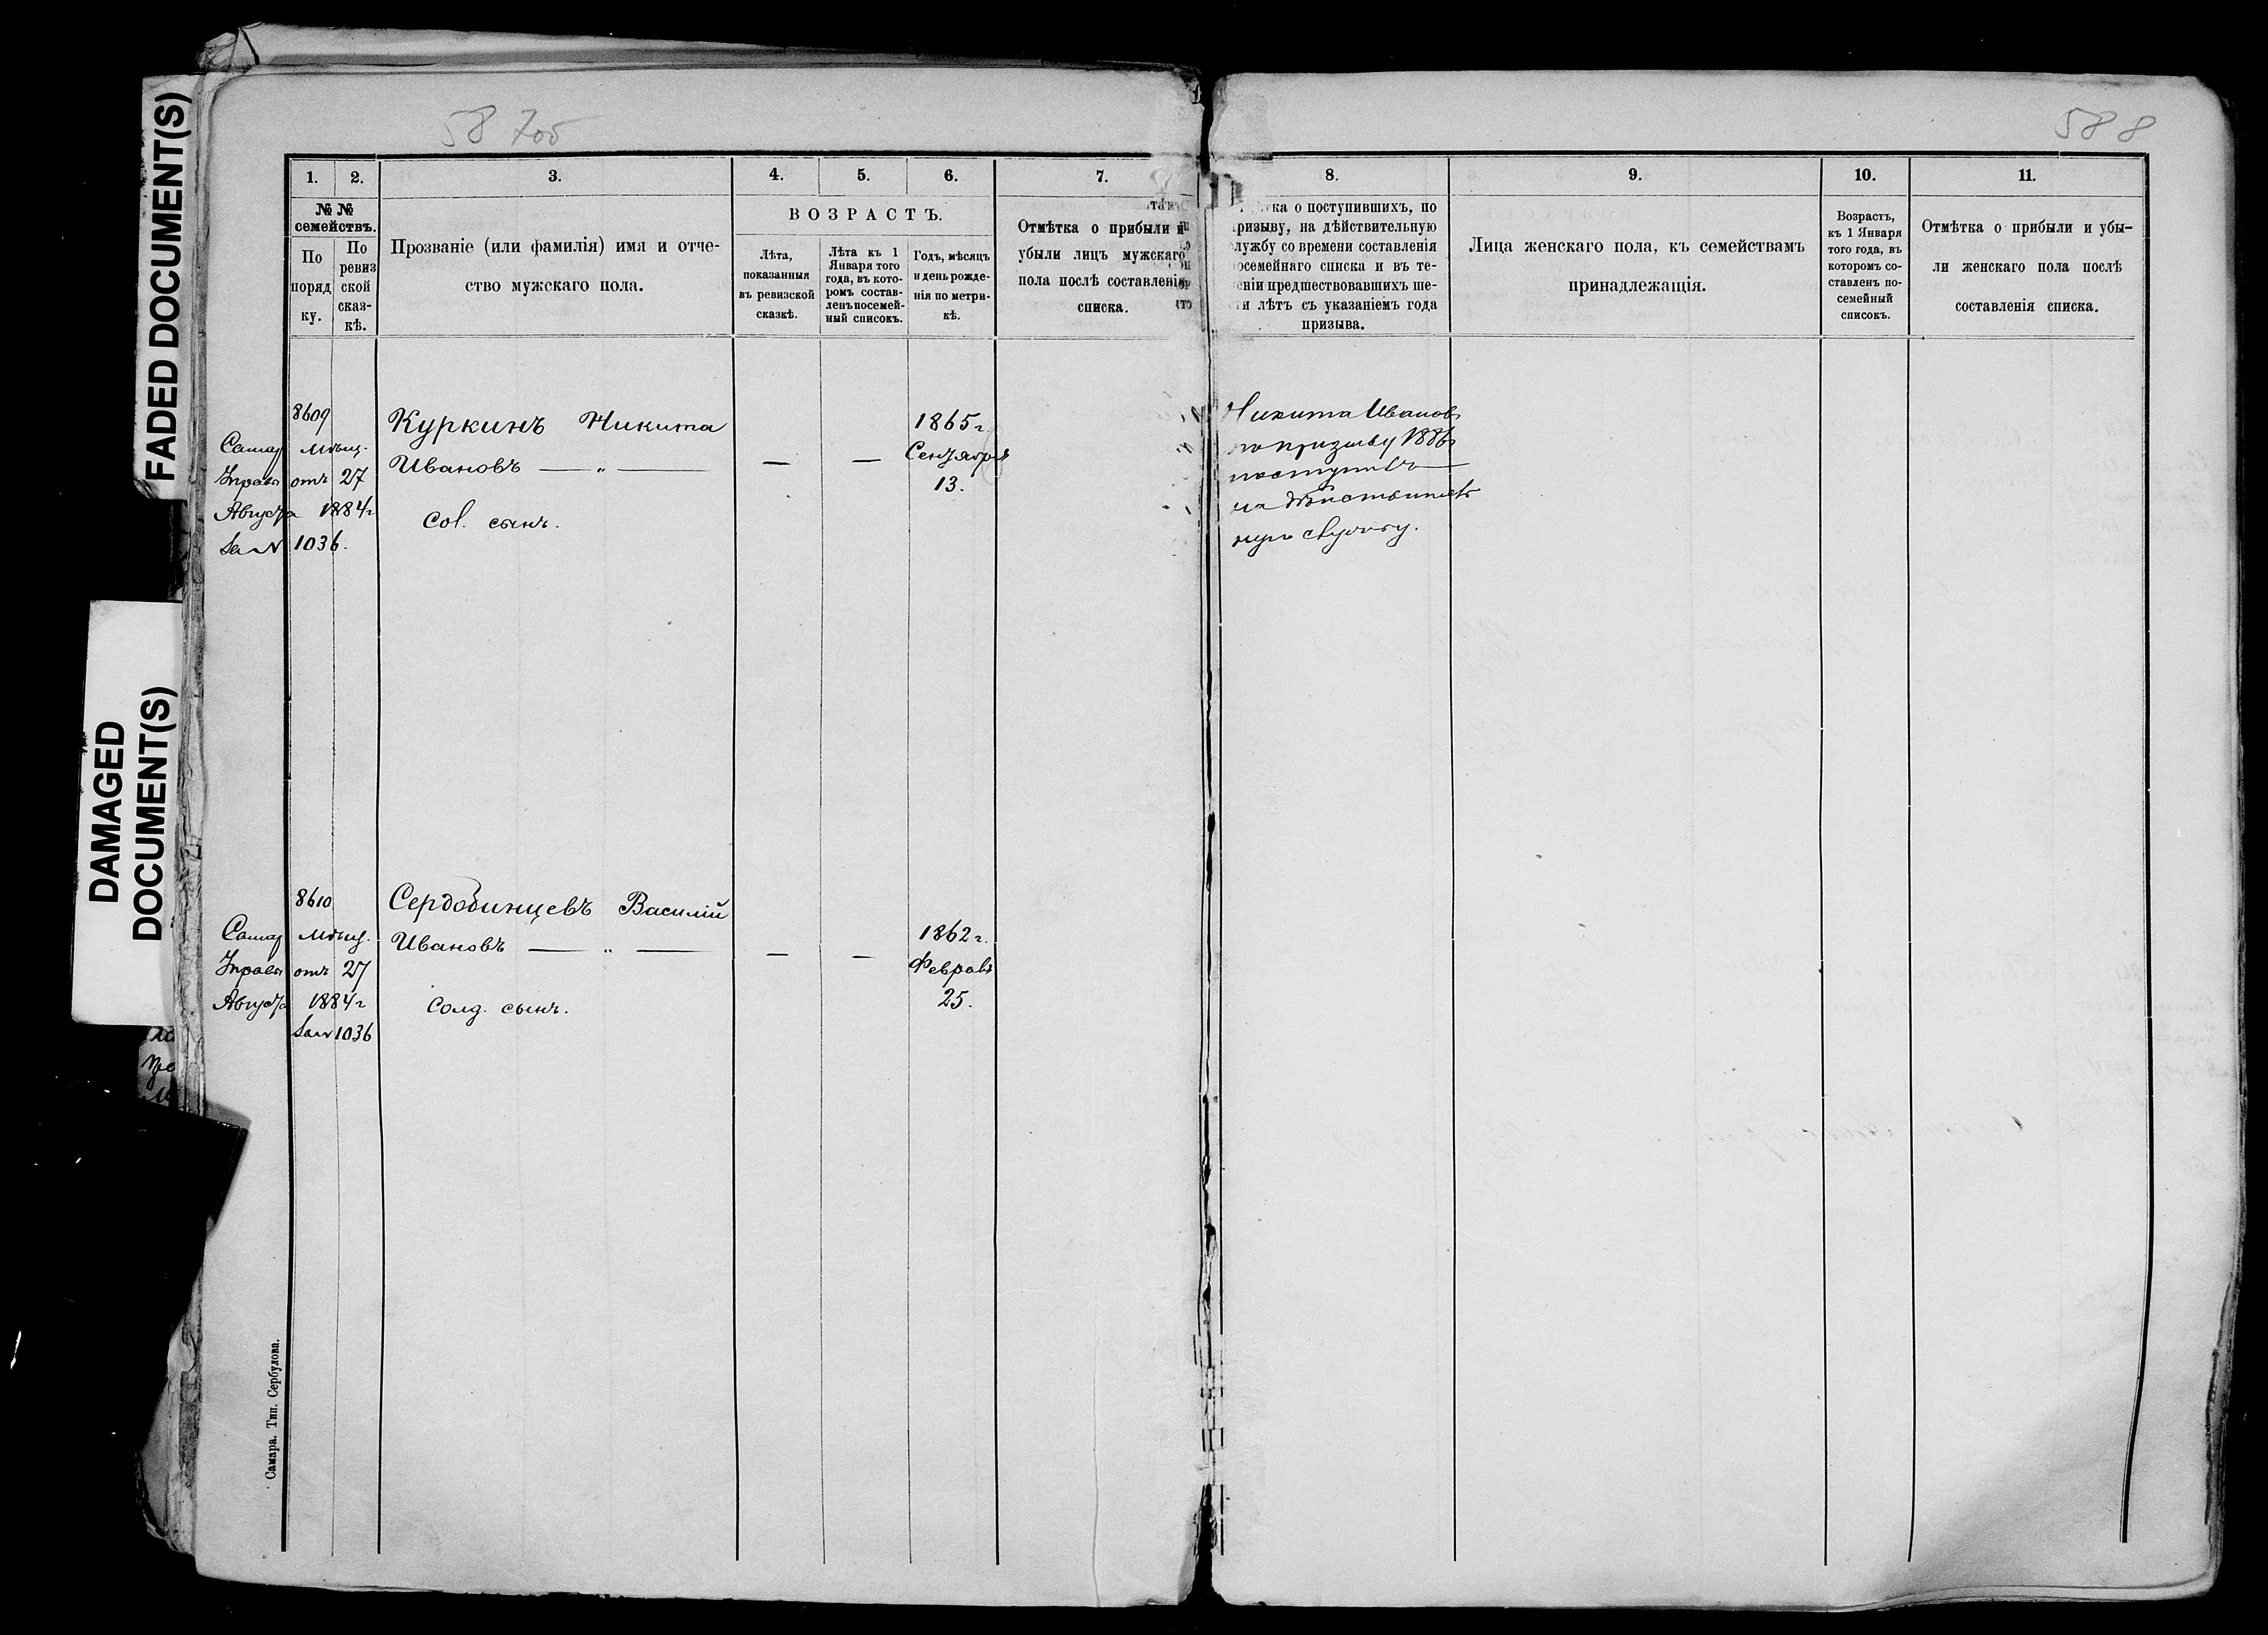 FADED DOCUMENT(S)
DAMAGED
DOCUMENT(S)
58 705
588
1.
2.
3.
4.
5.
6.
7.
8.
9.
10.
11.
№ №
семействъ.
По
поряд
ку.
По
ревиз
ской
сказ-
кѣ.
Прозваніе (или фамилія) имя и отче-
ство мужскаго пола.
ВОЗРАСТЪ.
Лѣта,
показанныя
въ ревизской
сказкѣ.
Лѣта къ 1
Января того
года, въ кото-
ромъ состав-
ленъ посемей-
ный списокъ.
Годъ, мѣсяцъ
и день рожде-
нія по метри-
кѣ.
Отмѣтка о прибыли и
убыли лицъ мужскаго
пола послѣ составленія
списка.
ка о поступившихъ, по
ризыву, на дѣйствительную
лужбу со времени составленія
осемейнаго списка и въ те-
еніи предшествовавшихъ ше-
и лѣтъ съ указаніемъ года
призыва.
Лица женскаго пола, къ семействамъ
принадлежащія.
Возрастъ,
къ 1 Января
того года, въ
которомъ со-
ставленъ по-
семейный
списокъ.
Отмѣтка о прибыли и убы-
ли женскаго пола послѣ
составленія списка.
8609
Самар Мѣщ.
Управы отъ 27
Августа 1884 г
За № 1036.
Куркинъ Никита
Ивановъ — „ —
сол. сынъ.
— —
1865 г.
Сентября
13.
Никита Иванов
по призыву 1886
поступилъ
на дѣйствитель
ную службу.
8610
Самар Мѣщ.
Управы отъ 27
Августа 1884 г
За № 1036
Сердобинцевъ Василій
Ивановъ — „ —
солд. сынъ.
— —
1862 г.
Февраля
25.
Самара. Тип. Сербулова.